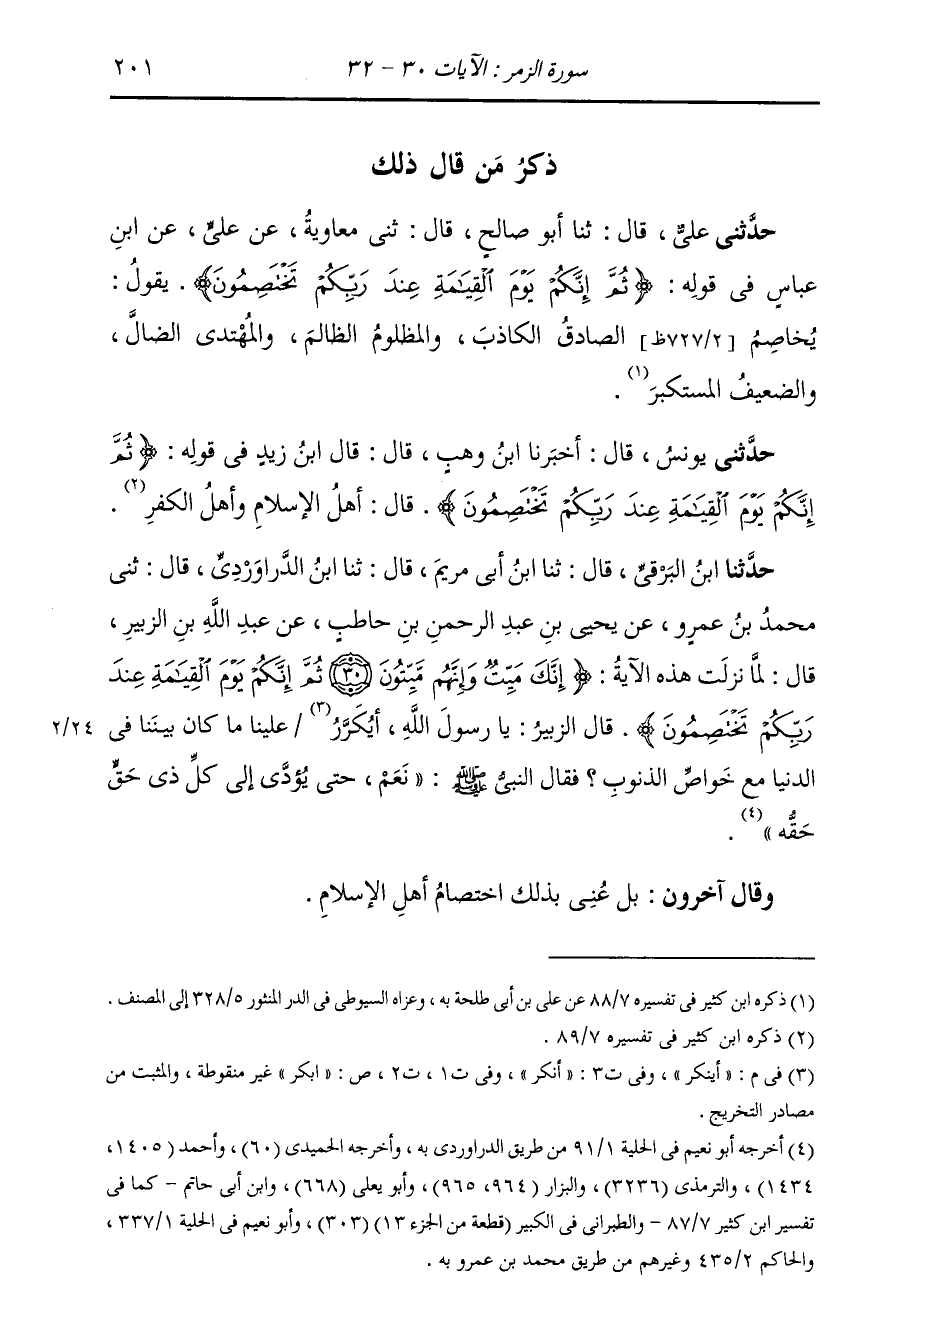 سورة الزمر : الآيات ٣٠ - ٣٢ ٢٠١
ذكرُ مَن قال ذلك
حدَّثنى علىٌّ ، قال : ثنا أبو صالحٍ ، قال : ثنى معاويةُ ، عن علىٍّ ، عن ابنِ
عباسٍ فى قولِه : ﴿ ثُمَّ إِنَّكُمْ يَوْمَ ٱلْقِيَـٰمَةِ عِندَ رَبِّكُمْ تَخْتَصِمُونَ ﴾ . يقولُ :
يُخاصِمُ [ ٧٢٧/٢ظ ] الصادقُ الكاذبَ ، والمظلومُ الظالمَ ، والمُهْتدى الضالَّ ،
والضعيفُ المستكبرَ(١) .
حدَّثنى يونسُ ، قال : أخبَرنا ابنُ وهبٍ ، قال : قال ابنُ زيدٍ فى قولِه : ﴿ ثُمَّ
إِنَّكُمْ يَوْمَ ٱلْقِيَـٰمَةِ عِندَ رَبِّكُمْ تَخْتَصِمُونَ ﴾ . قال : أهلُ الإسلامِ وأهلُ الكفرِ(٢) .
حدَّثنا ابنُ البَرْقىِّ ، قال : ثنا ابنُ أبى مريمَ ، قال : ثنا ابنُ الدَّراوَرْدِىِّ ، قال : ثنى
محمدُ بنُ عمرٍو ، عن يحيى بنِ عبدِ الرحمنِ بنِ حاطبٍ ، عن عبدِ اللَّهِ بنِ الزبيرِ ،
قال : لمَّا نزلَت هذه الآيةُ : ﴿ إِنَّكَ مَيِّتٌ وَإِنَّهُم مَّيِّتُونَ ٣٠ ثُمَّ إِنَّكُمْ يَوْمَ ٱلْقِيَـٰمَةِ عِندَ
رَبِّكُمْ تَخْتَصِمُونَ ﴾ . قال الزبيرُ : يا رسولَ اللَّهِ ، أيُكَرَّرُ(٣) / علينا ما كان بينَنا فى ٢/٢٤
الدنيا مع خَواصِّ الذنوبِ ؟ فقال النبىُّ ﷺ : « نَعَمْ ، حتى يُؤدَّى إلى كلِّ ذى حَقٍّ
حَقُّه »(٤) .
وقال آخرون : بل عُنِى بذلك اختصامُ أهلِ الإسلامِ .
(١) ذكره ابن كثير فى تفسيره ٨٨/٧ عن على بن أبى طلحة به ، وعزاه السيوطى فى الدر المنثور ٣٢٨/٥ إلى المصنف .
(٢) ذكره ابن كثير فى تفسيره ٨٩/٧ .
(٣) فى م : « أينكر » ، وفى ت٣ : « أنكر » ، وفى ت١ ، ت٢ ، ص : « ابكر » غير منقوطة ، والمثبت من
مصادر التخريج .
(٤) أخرجه أبو نعيم فى الحلية ٩١/١ من طريق الدراوردى به ، وأخرجه الحميدى (٦٠) ، وأحمد (١٤٠٥ ،
١٤٣٤) ، والترمذى (٣٢٣٦) ، والبزار (٩٦٤، ٩٦٥) ، وأبو يعلى (٦٦٨) ، وابن أبى حاتم - كما فى
تفسير ابن كثير ٨٧/٧ - والطبرانى فى الكبير (قطعة من الجزء ١٣) (٣٠٣) ، وأبو نعيم فى الحلية ٣٣٧/١ ،
والحاكم ٤٣٥/٢ وغيرهم من طريق محمد بن عمرو به .